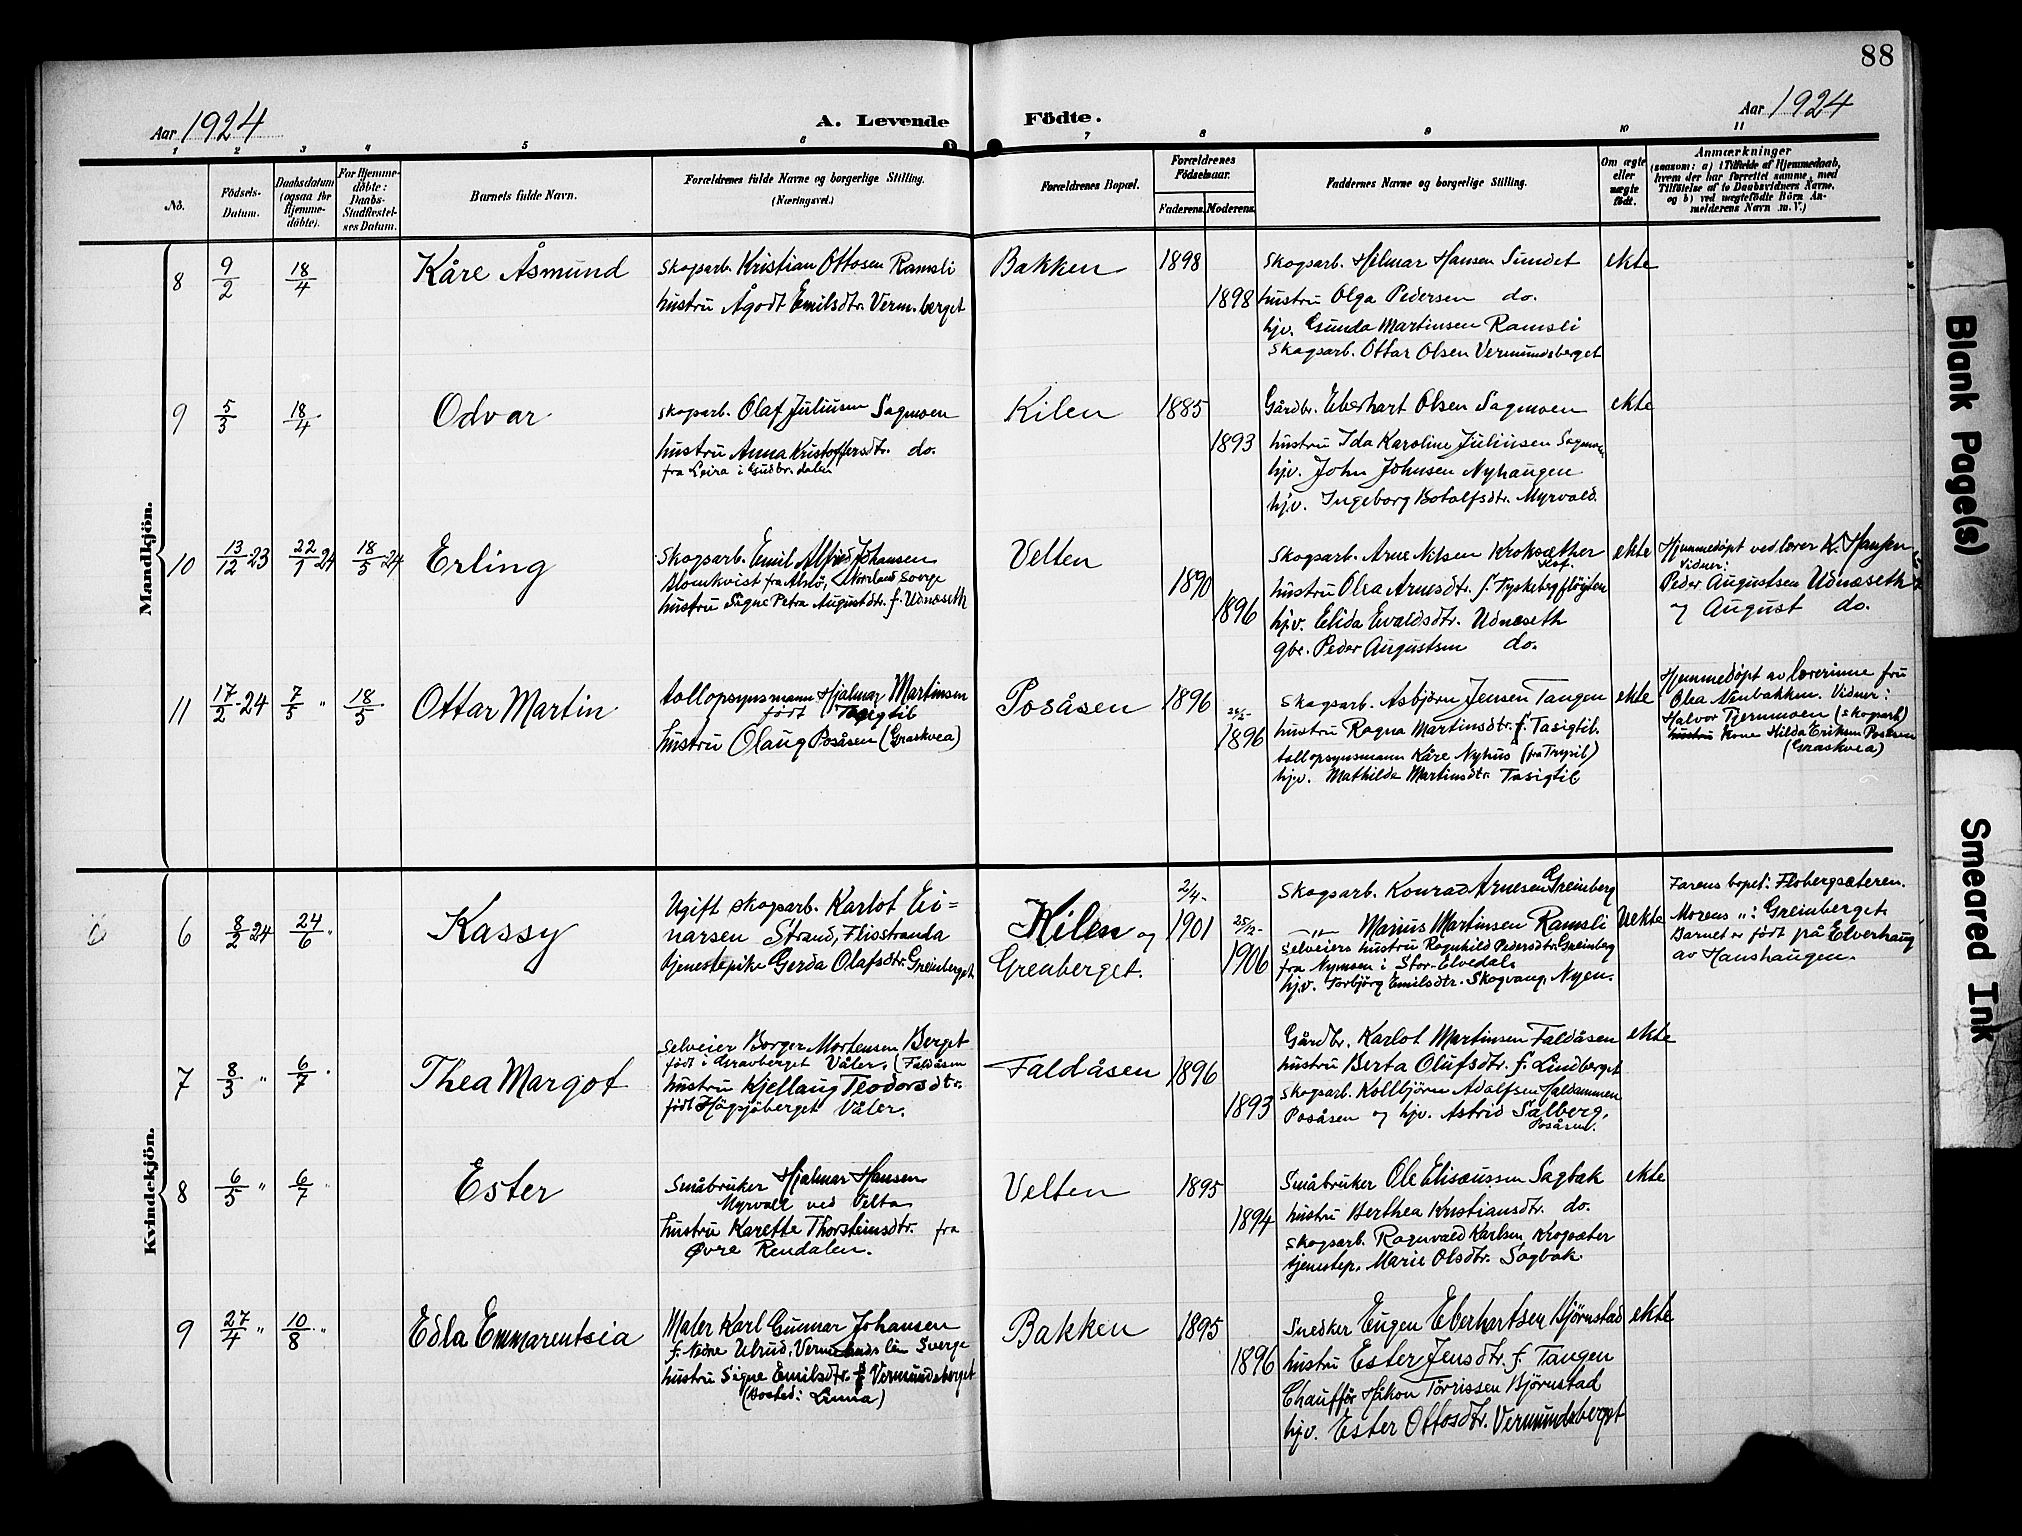 88
Aar 1924
A. Levende Födte.
Aar 1924
1 2 3 4 5 6 7 8 9 10 11
No.
Födsels-Datum.
Daabsdatum (ogsaa for Hjemme-döbte).
For Hjemme-döbte: Daabs-Stadfæstel-ses Datum.
Barnets fulde Navn.
Forældrenes fulde Navne og borgerlige Stilling.
(Næringsvei.)
Forældrenes Bopæl.
Forældrenes Födselsaar.
Faderens. Moderens.
Faddernes Navne og borgerlige Stilling.
Om ægte eller uægte födt.
Anmærkninger
(saasom: a) i Tilfælde af Hjemmedaab,
hvem der har forrettet samme, med
Tilföielse af to Daabsvidners Navne,
og b) ved uægtefödte Börn An-
melderens Navn m. V.)
Mandkjön.
8 9/2 18/4 Kåre Åsmund
Skogsarb. Kristian Ottosen Ramsli
hustru Ågodt Emilsdtr. Verm.berget
Bakken 1898 1898
Skogsarb. Hilmar Hansen Sundet
hustru Olga Pedersen do.
hjv. Gunda Martinsen Ramsli
Skogsarb. Ottar Olsen Vermundsberget
ekte
9 5/3 18/4 Odvar
Skogsarb. Olaf Juliusen Sagmoen
hustru Anna Kristoffersdtr. do.
fra Leira i Gudbr.dalen
Kilen 1885 1893
Gårdbr. Eberhart Olsen Sagmoen
hustru Ida Karoline Juliusen Sagmoen
hjv. John Johnsen Nyhaugen
hjv. Ingeborg Botolfsdtr. Myrvold.
ekte
10 13/12-23 22/1-24 18/5-24 Erling
Skogsarb. Emil Alfred Johansen
Blomkvist fra Norland Sverge
hustru Signe Petra Augustdtr. f. Udnæseth
Velten 1890 1896
Skogsarb. Arne Nilsen Kroksæther
hustru Olea Arnesdtr. f.
hjv. Elida Evaldsdtr. Udnæseth
gbr. Peder Augustsen do.
ekte
Hjemmedöpt ved lærer K. Hansen
Vidner:
Peder Augustsen Udnæseth
og August do.
11 17/2-24 7/5 " 18/5 Ottar Martin
tollopsynsmann Hjalmar Martinsen
født Tasigtil
hustru Olaug Posåsen (Graskvea)
Posåsen 1896 1896
Skogsarb. Asbjørn Jensen Tangen
hustru Ragna Martinsdtr. f. Tasigtil.
tollopsynsmann Kåre Nyhus (fra Trysil)
hjv. Mathilde Martinsdtr. Tasigtil
ekte
Hjemmedöpt av lærerinne fru
Olea Nybakken. Vidner:
Halvor Tjernmoen (skogsarb)
hustru Kone Hilda Eriksen Posåsen
(Graskvea)
Kvindekjön.
6 8/2-24 24/6 " Kassy
Ugift skogsarb. Karlot Ei=
narsen Strand, Flisstranda
tjenestepike Gerda Olafsdtr. Greinberget
Kilen og
Grenberget.
2/4- 1901 25/2- 1906
Skogsarb. Konrad Arnesen Greinberg
—"— Marius Martinsen Ramsli
Selveiers hustru Ragnhild Pedersdtr. Greinberg
fra Nymoen i Stor-Elvedal.
hjv. Torbjörg Emilsdtr. Skogvang, Nyen.
Uekte
Farens bopel: Flisbergsæteren.
Morens ": Greinberget.
Barnet er født på Elverhaug
av Hanshaugen.
7 8/3 " 6/7 " Thea Margot
Selveier Borger Mortensen Berget
født i Gravberget Våler, (Faldåsen
hustru Kjellaug Teodorsdtr.
født Högsjöberget Våler.
Faldåsen 1896 1893
Gårdbr. Karlot Martinsen Faldåsen
hustru Berta Olufsdtr. f. Lindberget
Skogsarb. Kollbjörn Adolfsen Haldammen
Posåsen og hjv. Astrid Sålberg,
Posåsen.
ekte
8 6/5 " 6/7 Ester
Småbruker Hjalmar Hansen
Myrvold ved Velta
hustru Karette Thorsteinsdtr. fra
Øvre Rendalen.
Velten 1895 1894
Småbruker Ole Elisæussen Sagbak
hustru Berthea Kristiansdtr. do.
Skogsarb. Ragnvald Karlsen Krogsæter
tjenestep. Marie Olsdtr. Sagbak.
ekte
9 27/4 " 10/8 " Edla Emmarentsia
Maler Karl Gunnar Johansen
f. Nedre Ulrud, Vermlands län Sverge
hustru Signe Emilsdtr. f. Vermundsberget
(Bosted: Linna)
Bakken 1895 1896
Snedker Eugen Eberhartsen Björnstad
hustru Ester Jensdtr. f. Tangen
Chauffør Håkon Törrissen Björnstad
hjv. Ester Ottosdtr. Vermundsberget
ekte
Blank Page(s)
Smeared Ink